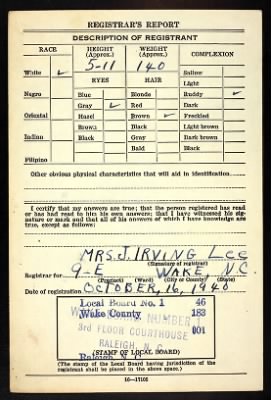 REGISTRAR'S REPORT
DESCRIPTION OF REGISTRANT
RACE HEIGHT (Approx.) WEIGHT (Approx.) COMPLEXION
5-11 140
White ✓ EYES HAIR Sallow
Light
Negro Blue Blonde Ruddy ✓
Gray ✓ Red Dark
Oriental Hazel Brown ✓ Freckled
Brown Black Light brown
Indian Black Gray Dark brown
Bald Black
Filipino
Other obvious physical characteristics that will aid in identification
I certify that my answers are true; that the person registered has read
or has had read to him his own answers; that I have witnessed his sig-
nature or mark and that all of his answers of which I have knowledge are
true, except as follows:
MRS. J. IRVING Lee
(Signature of registrar)
Registrar for 9-E WAKE, N.C.
(Precinct) (Ward) (City or County) (State)
Date of registration OCTOBER, 16, 1940
Local Board No. 1 46
Wake County 183
NUMBER 1
3rd FLOOR COURTHOUSE 001
RALEIGH, N. C.
(STAMP OF LOCAL BOARD)
Raleigh N. C.
(The stamp of the Local Board having jurisdiction of the
registrant shall be placed in the above space.)